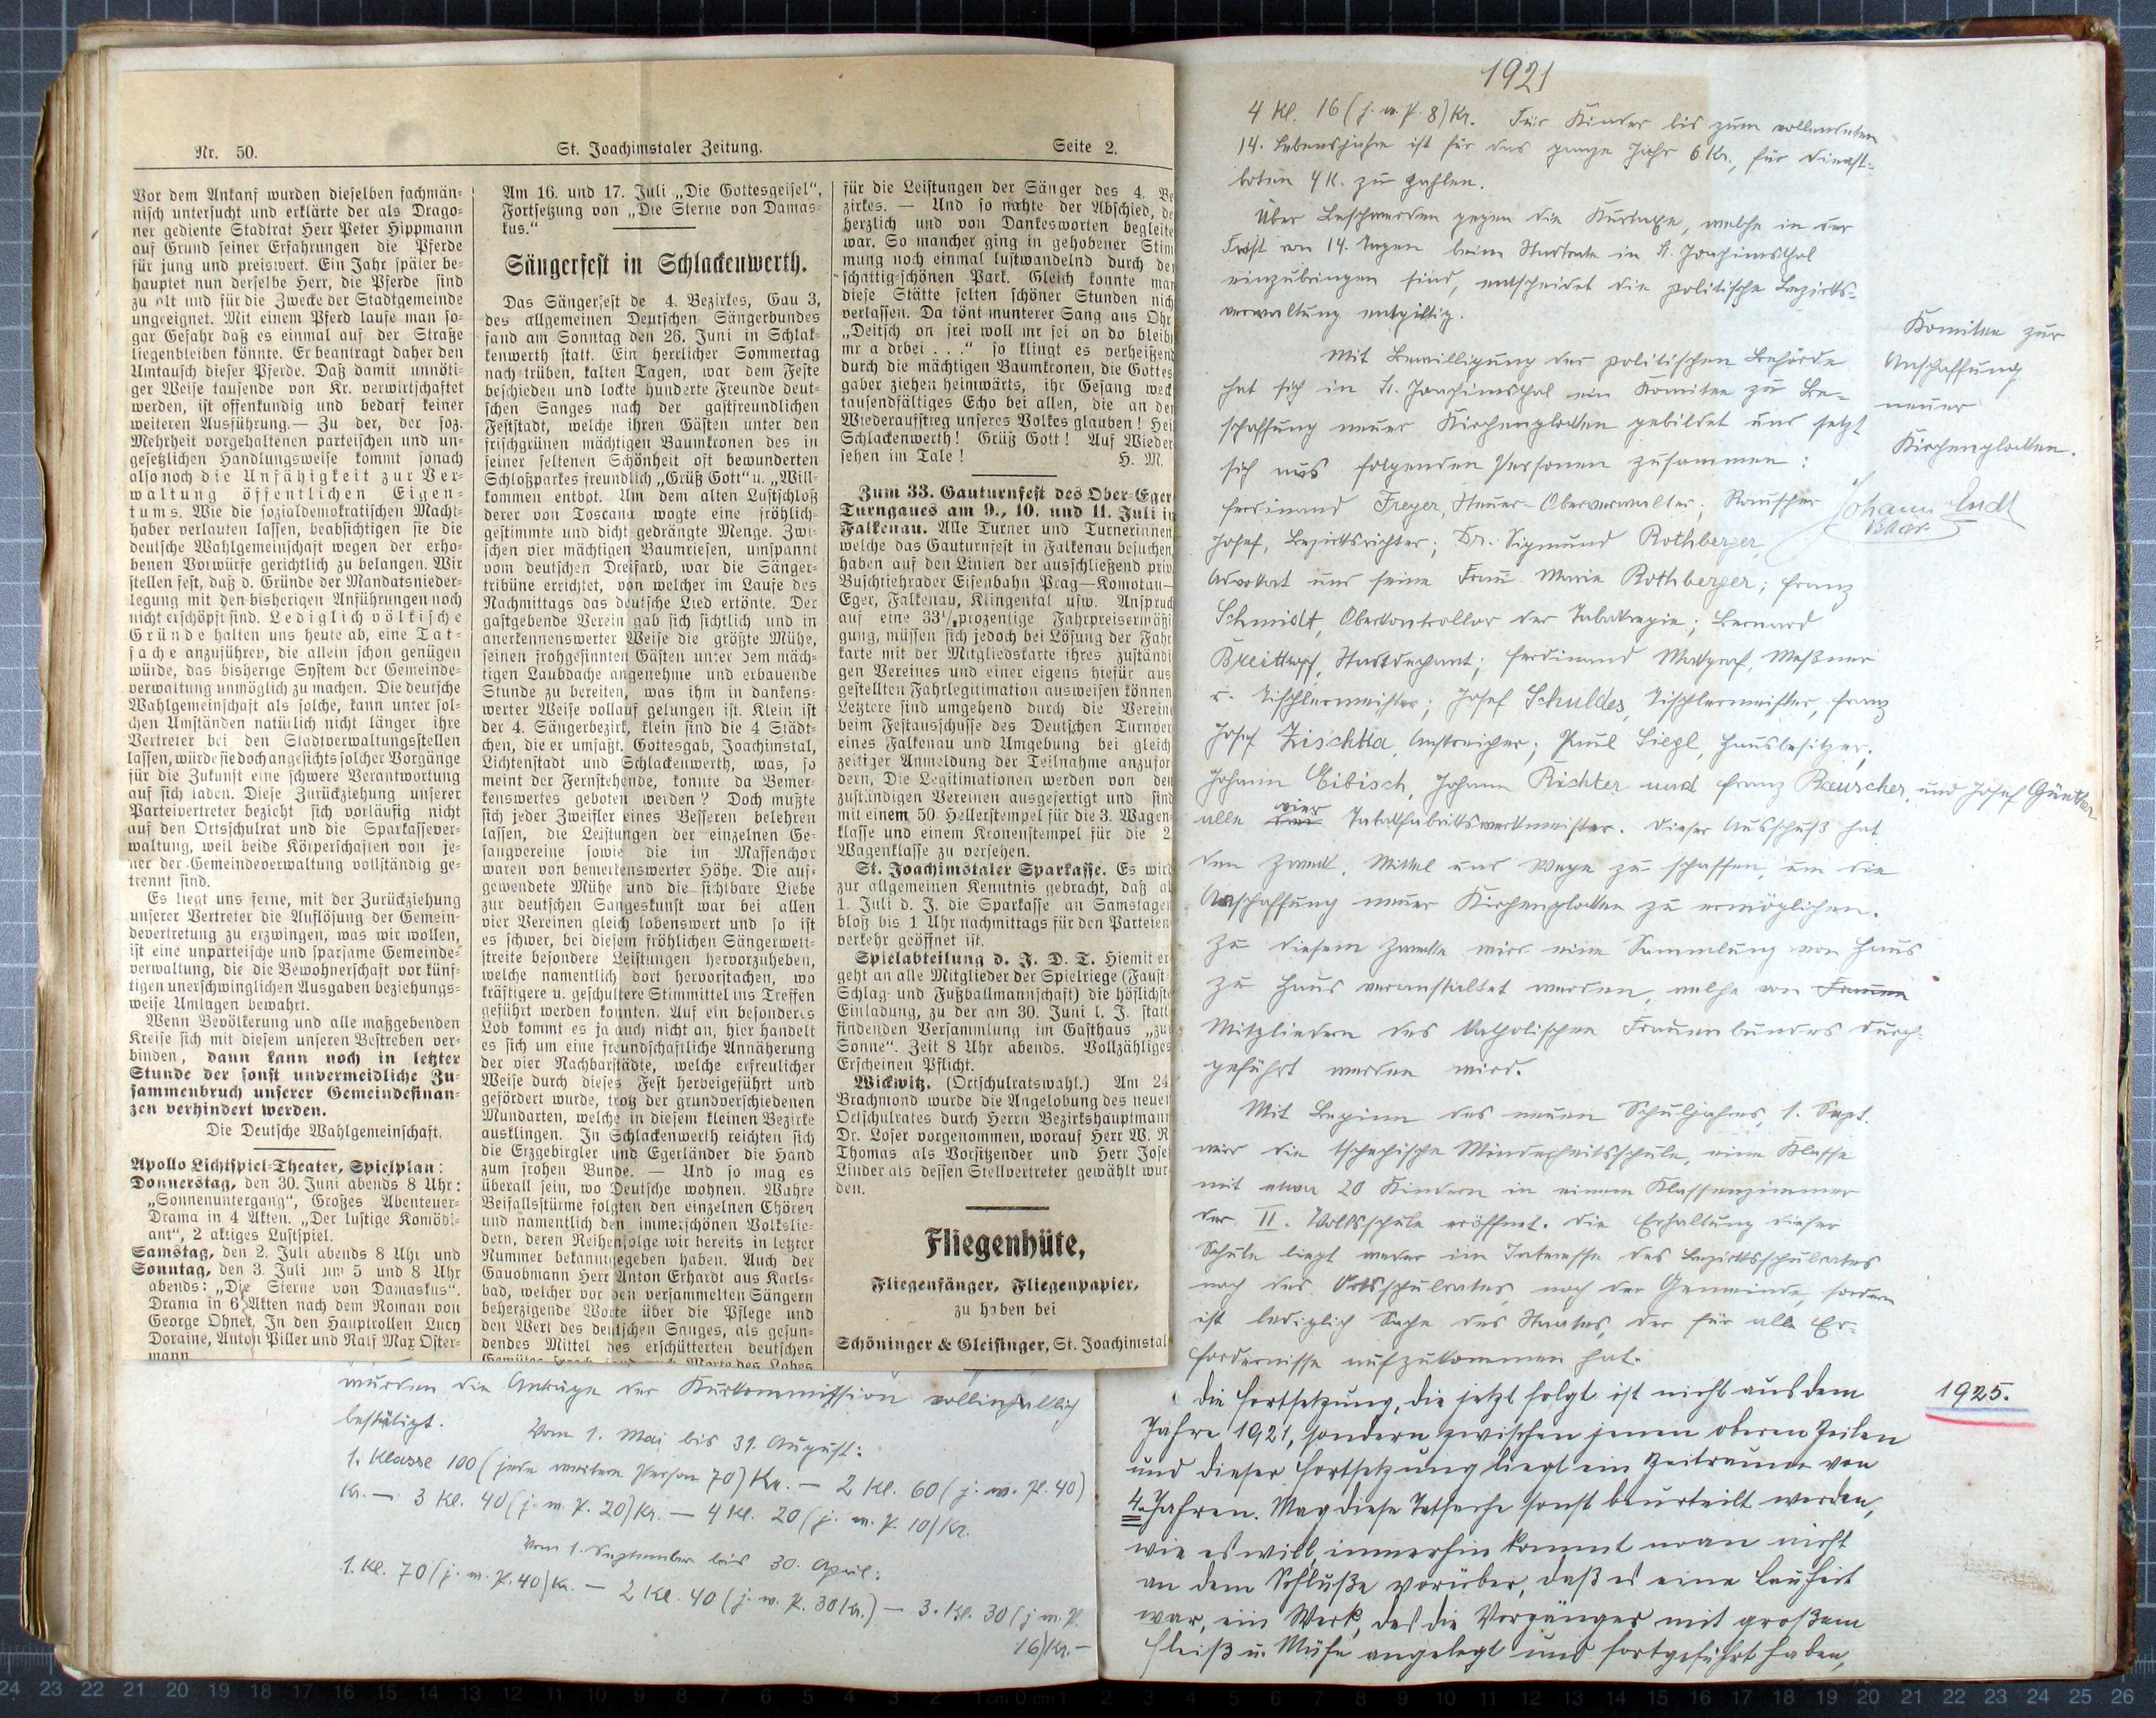 Nr. 50.
St. Joachimstaler Zeitung.
Seite 2.
Vor dem Ankauf wurden dieselben fachmän-
nisch untersucht und erklärte der als Drago-
ner gediente Stadtrat Herr Peter Hippmann
auf Grund seiner Erfahrungen die Pferde
für jung und preiswert. Ein Jahr später be-
hauptet nun derselbe Herr, die Pferde sind
zu alt und für die Zwecke der Stadtgemeinde
ungeeignet. Mit einem Pferd laufe man so-
gar Gefahr daß es einmal auf der Straße
liegenbleiben könnte. Er beantragt daher den
Umtausch dieser Pferde. Daß damit unnöti-
ger Weise tausende von Kr. verwirtschaftet
werden, ist offenkundig und bedarf keiner
weiteren Ausführung.— Zu der, der soz.
Mehrheit vorgehaltenen parteischen und un-
gesetzlichen Handlungsweise kommt sonach
also noch die Unfähigkeit zur Ver-
waltung öffentlichen Eigen-
tums. Wie die sozialdemokratischen Macht-
haber verlauten lassen, beabsichtigen sie die
deutsche Wahlgemeinschaft wegen der erho-
benen Vorwürfe gerichtlich zu belangen. Wir
stellen fest, daß d. Gründe der Mandatsnieder-
legung mit den bisherigen Anführungen noch
nicht erschöpft sind. Lediglich völkische
Gründe halten uns heute ab, eine Tat-
sache anzuführen, die allein schon genügen
würde, das bisherige System der Gemeinde-
verwaltung unmöglich zu machen. Die deutsche
Wahlgemeinschaft als solche, kann unter sol-
chen Umständen natürlich nicht länger ihre
Vertreter bei den Stadtverwaltungsstellen
lassen, würde sie doch angesichts solcher Vorgänge
für die Zukunft eine schwere Verantwortung
auf sich laden. Diese Zurückziehung unserer
Parteivertreter bezieht sich vorläufig nicht
auf den Ortsschulrat und die Sparkassever-
waltung, weil beide Körperschaften von je-
ner der Gemeindeverwaltung vollständig ge-
trennt sind.
Es liegt uns ferne, mit der Zurückziehung
unserer Vertreter die Auflösung der Gemein-
devertretung zu erzwingen, was wir wollen,
ist eine unparteische und sparsame Gemeinde-
verwaltung, die die Bewohnerschaft vor künf-
tigen unerschwinglichen Ausgaben beziehungs-
weise Umlagen bewahrt.
Wenn Bevölkerung und alle maßgebenden
Kreise sich mit diesem unseren Bestreben ver-
binden, dann kann noch in letzter
Stunde der sonst unvermeidliche Zu-
sammenbruch unserer Gemeindefinan-
zen verhindert werden.
Die Deutsche Wahlgemeinschaft.
Apollo Lichtspiel-Theater, Spielplan:
Donnerstag, den 30. Juni abends 8 Uhr:
„Sonnenuntergang“, Großes Abenteuer-
Drama in 4 Akten. „Der lustige Komödi-
ant“, 2 aktiges Lustspiel.
Samstag, den 2. Juli abends 8 Uhr und
Sonntag, den 3. Juli um 5 und 8 Uhr
abends: „Die Sterne von Damaskus“.
Drama in 6 Akten nach dem Roman von
George Ohnet. In den Hauptrollen Lucy
Doraine, Anton Piller und Ralf Max Oster-
mann
Am 16. und 17. Juli „Die Gottesgeisel“,
Fortsetzung von „Die Sterne von Damas-
kus.“
Sängerfest in Schlackenwerth.
Das Sängerfest de 4. Bezirkes, Gau 3,
des allgemeinen Deutschen Sängerbundes
fand am Sonntag den 26. Juni in Schlak-
kenwerth statt. Ein herrlicher Sommertag
nach trüben, kalten Tagen, war dem Feste
beschieden und lockte hunderte Freunde deut-
schen Sanges nach der gastfreundlichen
Feststadt, welche ihren Gästen unter den
frischgrünen mächtigen Baumkronen des in
seiner seltenen Schönheit oft bewunderten
Schloßparkes freundlich „Grüß Gott“ u. „Will-
kommen entbot. Um dem alten Lustschloß
derer von Toscana wogte eine fröhlich-
gestimmte und dicht gedrängte Menge. Zwi-
schen vier mächtigen Baumriesen, umspannt
vom deutschen Dreifarb, war die Sänger-
tribüne errichtet, von welcher im Laufe des
Nachmittags das deutsche Lied ertönte. Der
gastgebende Verein gab sich sichtlich und in
anerkennenswerter Weise die größte Mühe,
seinen frohgesinnten Gästen unter dem mäch-
tigen Laubdache angenehme und erbauende
Stunde zu bereiten, was ihm in dankens-
werter Weise vollauf gelungen ist. Klein ist
der 4. Sängerbezirk, klein sind die 4 Städt-
chen, die er umfaßt. Gottesgab, Joachimstal,
Lichtenstadt und Schlackenwerth, was, so
meint der Fernstehende, konnte da Bemer-
kenswertes geboten werden? Doch mußte
sich jeder Zweifler eines Besseren belehren
lassen, die Leistungen der einzelnen Ge-
sangvereine sowie die im Massenchor
waren von bemerkenswerter Höhe. Die auf-
gewendete Mühe und die sichtbare Liebe
zur deutschen Sangeskunst war bei allen
vier Vereinen gleich lobenswert und so ist
es schwer, bei diesem fröhlichen Sängerwett-
streite besondere Leistungen hervorzuheben,
welche namentlich dort hervorstachen, wo
kräftigere u. geschultere Stimmittel ins Treffen
geführt werden konnten. Auf ein besonderes
Lob kommt es ja auch nicht an, hier handelt
es sich um eine freundschaftliche Annäherung
der vier Nachbarstädte, welche erfreulicher
Weise durch dieses Fest herbeigeführt und
gefördert wurde, trotz der grundverschiedenen
Mundarten, welche in diesem kleinen Bezirke
ausklingen. In Schlackenwerth reichten sich
die Erzgebirgler und Egerländer die Hand
zum frohen Bunde. — Und so mag es
überall sein, wo Deutsche wohnen. Wahre
Beifallsstürme folgten den einzelnen Chören
und namentlich den immerschönen Volkslie-
dern, deren Reihenfolge wir bereits in letzter
Nummer bekanntgegeben haben. Auch der
Gauobmann Herr Anton Erhardt aus Karls-
bad, welcher vor den versammelten Sängern
beherzigende Worte über die Pflege und
den Wert des deutschen Sanges, als gesun-
dendes Mittel des erschütterten deutschen
für die Leistungen der Sänger des 4. Be
zirkes. — Und so nahte der Abschied, de
herzlich und von Dankesworten begleite
war. So mancher ging in gehobener Stim
mung noch einmal lustwandelnd durch de
schattig-schönen Park. Gleich konnte man
diese Stätte selten schöner Stunden nich
verlassen. Da tönt munterer Sang ans Ohr
„Deitsch on frei woll mr sei on do bleib
mr a drbei . . .“ so klingt es verheißend
durch die mächtigen Baumkronen, die Gottes
gaber ziehen heimwärts, ihr Gesang weck
tausendfältiges Echo bei allen, die an den
Wiederaufstieg unseres Volkes glauben! Hei
Schlackenwerth! Grüß Gott! Auf Wieder
sehen im Tale! H. M.
Zum 33. Gauturnfest des Ober-Eger
Turngaues am 9., 10. und 11. Juli in
Falkenau. Alle Turner und Turnerinnen
welche das Gauturnfest in Falkenau besuchen,
haben auf den Linien der ausschließend priv.
Buschtiehrader Eisenbahn Prag—Komotau—
Eger, Falkenau, Klingental usw. Anspruch
auf eine 33⅓prozentige Fahrpreisermäßi
gung, müssen sich jedoch bei Lösung der Fahr
karte mit der Mitgliedskarte ihres zuständi
gen Vereines und einer eigens hiefür aus
gestellten Fahrlegitimation ausweisen können
Letztere sind umgehend durch die Vereine
beim Festausschusse des Deutschen Turnver
eines Falkenau und Umgebung bei gleich
zeitiger Anmeldung der Teilnahme anzufor
dern. Die Legitimationen werden von den
zuständigen Vereinen ausgefertigt und sind
mit einem 50 Hellerstempel für die 3. Wagen
klasse und einem Kronenstempel für die 2
Wagenklasse zu versehen.
St. Joachimstaler Sparkasse. Es wird
zur allgemeinen Kenntnis gebracht, daß a
1. Juli d. J. die Sparkasse an Samstagen
bloß bis 1 Uhr nachmittags für den Parteien
verkehr geöffnet ist.
Spielabteilung d. J. D. T. Hiemit er
geht an alle Mitglieder der Spielriege (Faust-
Schlag- und Fußballmannschaft) die höflichste
Einladung, zu der am 30. Juni l. J. statt
findenden Versammlung im Gasthaus „zu
Sonne“. Zeit 8 Uhr abends. Vollzähliges
Erscheinen Pflicht.
Wickwitz. (Ortschulratswahl.) Am 24
Brachmond wurde die Angelobung des neuen
Ortschulrates durch Herrn Bezirkshauptmann
Dr. Loser vorgenommen, worauf Herr W. R
Thomas als Vorsitzender und Herr Jose
Linder als dessen Stellvertreter gewählt wur
den.
Fliegenhüte,
Fliegenfänger, Fliegenpapier,
zu haben bei
Schöninger & Gleisinger, St. Joachimstal
wurden die Anträge der Kurkommission vollinhaltlich
bestätigt.
Vom 1. Mai bis 31. August:
1. Klasse 100 (jede weitere Person 70) Kr. — 2 Kl. 60 (j. w. P. 40)
Kr. — 3 Kl. 40 (j. w. P. 20) Kr. — 4 Kl. 20 (j. w. P. 10) Kr.
Vom 1. September bis 30. April:
1. Kl. 70 (j. w. P. 40) Kr. — 2 Kl. 40 (j. w. P. 30 Kr.) — 3. Kl. 30 (j. w. P.
16) Kr. —
1921
4 Kl. 16 (j. w. P. 8) Kr. Für Kinder bis zum vollendeten
14. Lebensjahre ist für das ganze Jahr 6 Kr., für Dienst-
boten 4 K. zu zahlen.
Über Beschwerden gegen die Kurtaxe, welche in der
Frist von 14. Tagen beim Stadtrate in St. Joachimsthal
einzubringen sind, entscheidet die politische Bezirks-
verwaltung entgiltig.
Mit Bewilligung der politischen Behörde
hat sich in St. Joachimsthal ein Komitee zu Be-
schaffung neuer Kirchenglocken gebildet und setzt
sich aus folgenden Personen zusammen:
Ferdinand Freyer, Steuer-Oberverwalter; Rauscher
Josef, Bezirksrichter; Dr. Sigmund Rothberger,
Advokat und seine Frau Marie Rothberger; Franz
Schmidt, Oberkontrollor der Tabakregie; Bernard
Breitkopf, Stadtdechant; Ferdinand Markgraf, Meßner
u. Tischlermeister; Josef Schuldes, Tischlermeister, Franz
Josef Zischka, Anstreicher; Paul Siegl, Hausbesitzer;
Johann Eibisch, Johann Richter und Franz Bauscher, und Josef Günther
alle vier Tabakfabrikswerkmeister. Dieser Ausschuß hat
den Zweck, Mittel und Wege zu schaffen, um die
Anschaffung neuer Kirchenglocken zu ermöglichen.
Zu diesem Zwecke wird eine Sammlung von Haus
zu Haus veranstaltet werden, welche von Frauen
Mitgliedern des katholischen Frauenbundes durch-
geführt werden wird.
Mit Beginn des neuen Schuljahres, 1. Sept.
wird die tschechische Minderheitsschule, eine Klasse
mit etwa 20 Kindern in einem Klassenzimmer
der II. Volksschule eröffnet. Die Erhaltung dieser
Schule liegt weder im Interesse des Bezirksschulrates
noch des Ortsschulrates, noch der Gemeinde, sondern
ist lediglich Sache des Staates, der für alle Er-
fordernisse aufzukommen hat.
Komitee zur
Anschaffung
neuer
Kirchenglocken.
Die Fortsetzung, die jetzt folgt ist nicht aus dem
Jahre 1921, sondern zwischen jenen oberen Zeilen
und dieser Fortsetzung liegt ein Zeitraum von
4 Jahren. Mag diese Tatsache sonst beurteilt werden,
wie es will, immerhin kommt man nicht
an dem Schluße vorüber, daß es eine Lauheit
war, ein Werk, das die Vorgänger mit großem
Fleiß u. Mühe angelegt und fortgeführt haben,
1925.